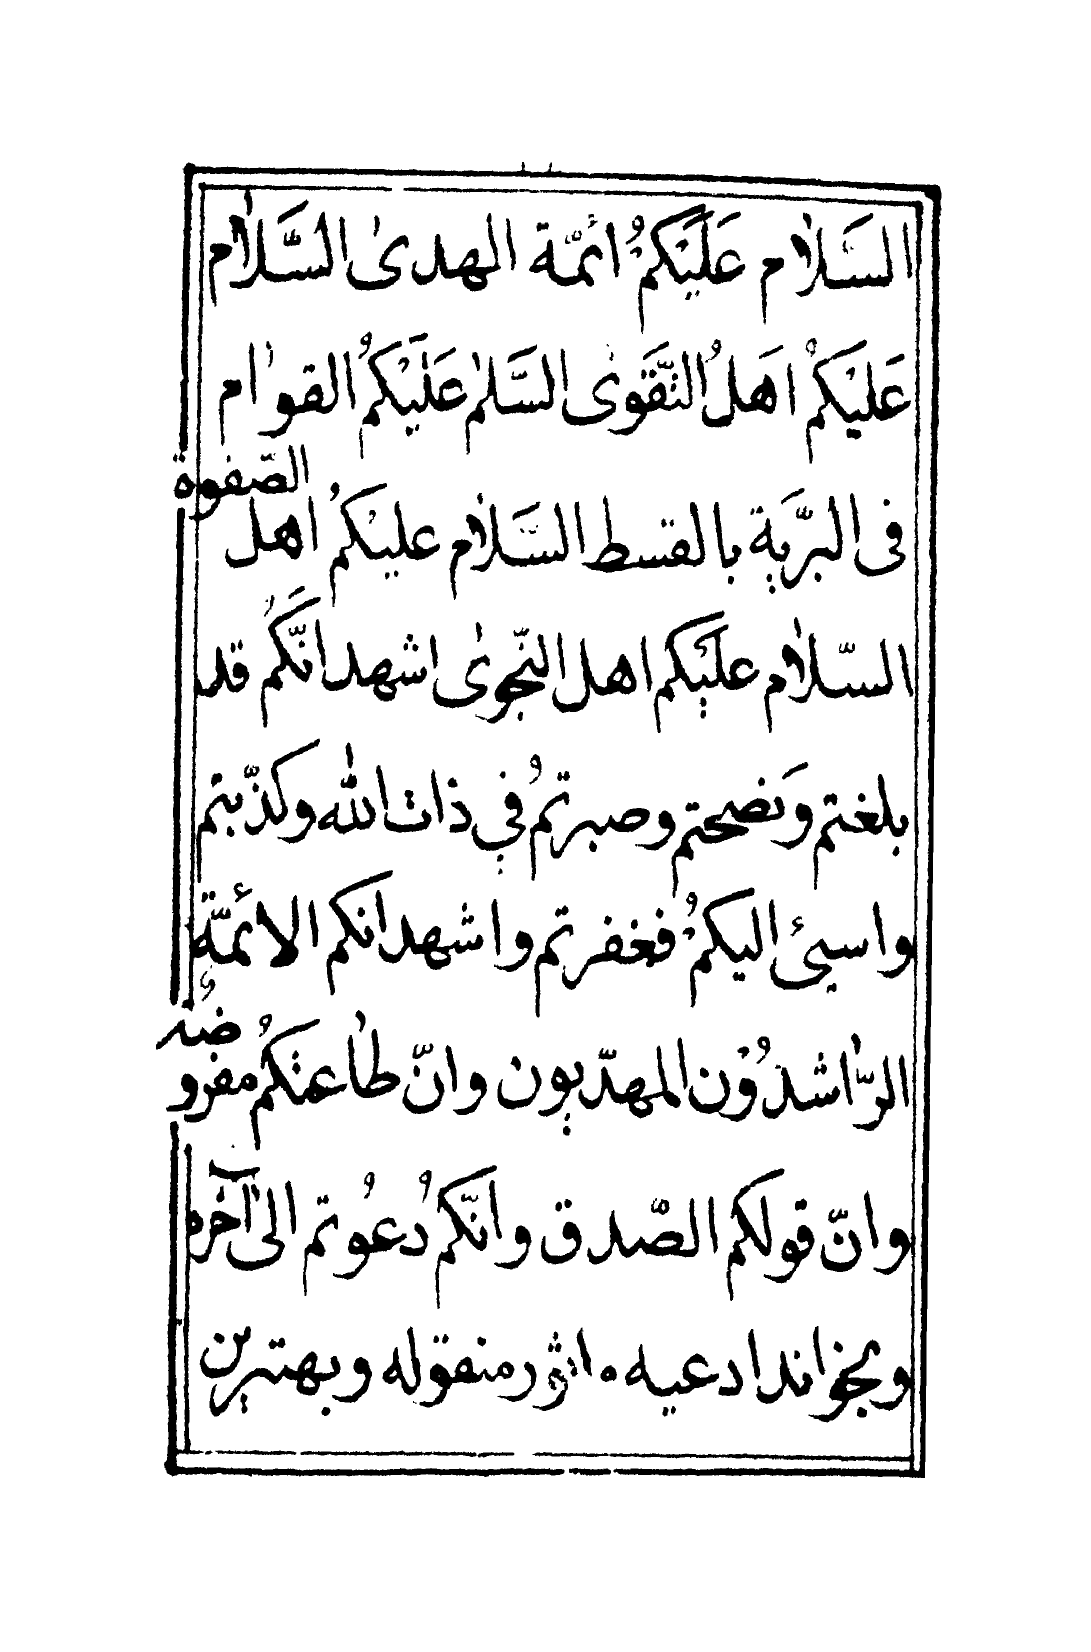 السَّلٰام عَلَيْكُمْ ائمّة الهدىٰ السَّلٰام
عَليْكُمْ اهَلُ التَّقوىٰ السَّلٰم عَلَيْكُمْ القوٰام
فى البرَّية بالقسط السَّلٰام عليكُم اهل الصّفوة
السّلٰام علَيكم اهل النّجوىٰ اشهد انَّكُم قد
بلغتم وَنصحتم وصبرتمُ في ذات اللّٰه وكذّبتم
واسيئ اليكُم فغفرتم واشهد انكم الائمَّة
الرّٰاشدُوْن المهدّيون وانّ طٰاعتكُم مفروضُه
وانّ قولكم الصّدق وانّكُم دُعُوتم الىٰ آخْره
وبخواند ادعيه در منقوله وبهترين